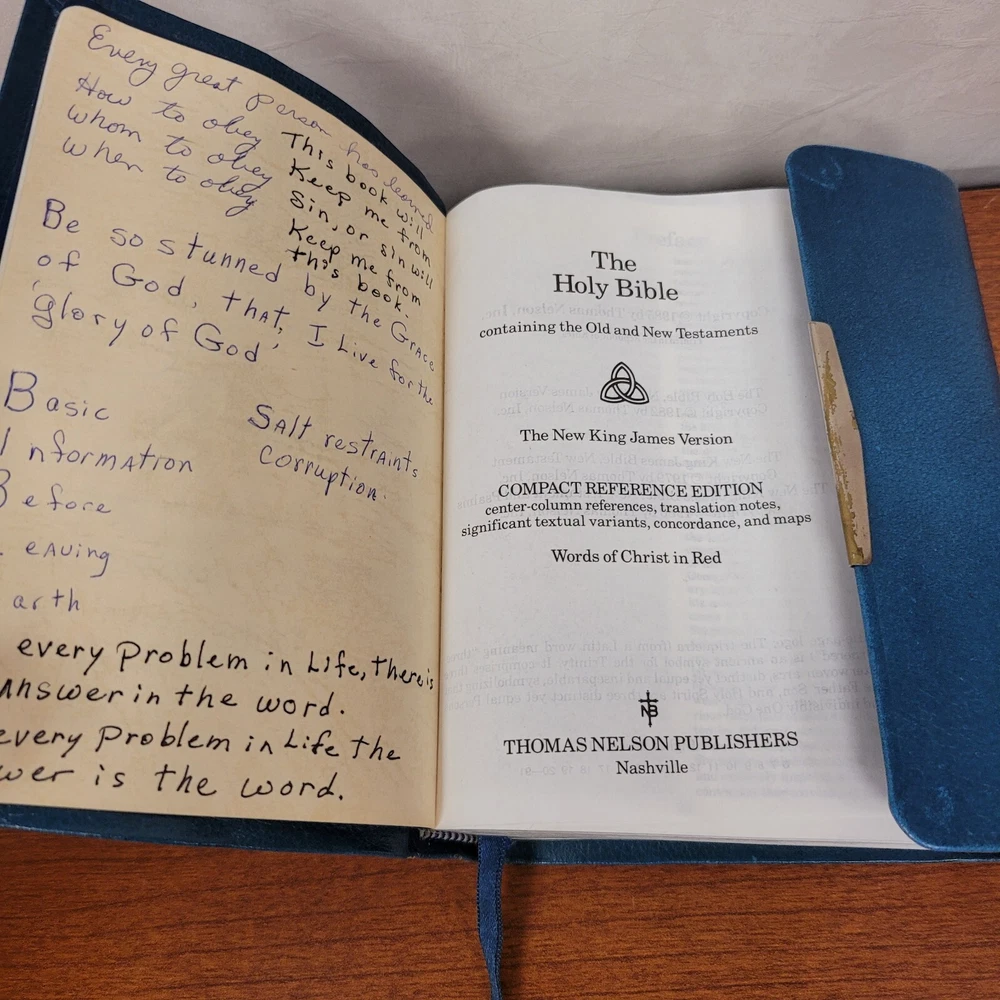 Every great person has learned
How to obey
whom to obey
when to obey
This book will
Keep me from
Sin, or sin will
Keep me from
this book.
Be so stunned by the GrAce
of God, thAt, I Live for the
'glory of God'
Basic
InformAtion
Before
eAving
arth
SAlt restrAints
Corruption.
every Problem in Life, there is
Answer in the word.
every Problem in Life the
wer is the word.
The
Holy Bible
containing the Old and New Testaments
The New King James Version
COMPACT REFERENCE EDITION
center-column references, translation notes,
significant textual variants, concordance, and maps
Words of Christ in Red
NB
THOMAS NELSON PUBLISHERS
Nashville